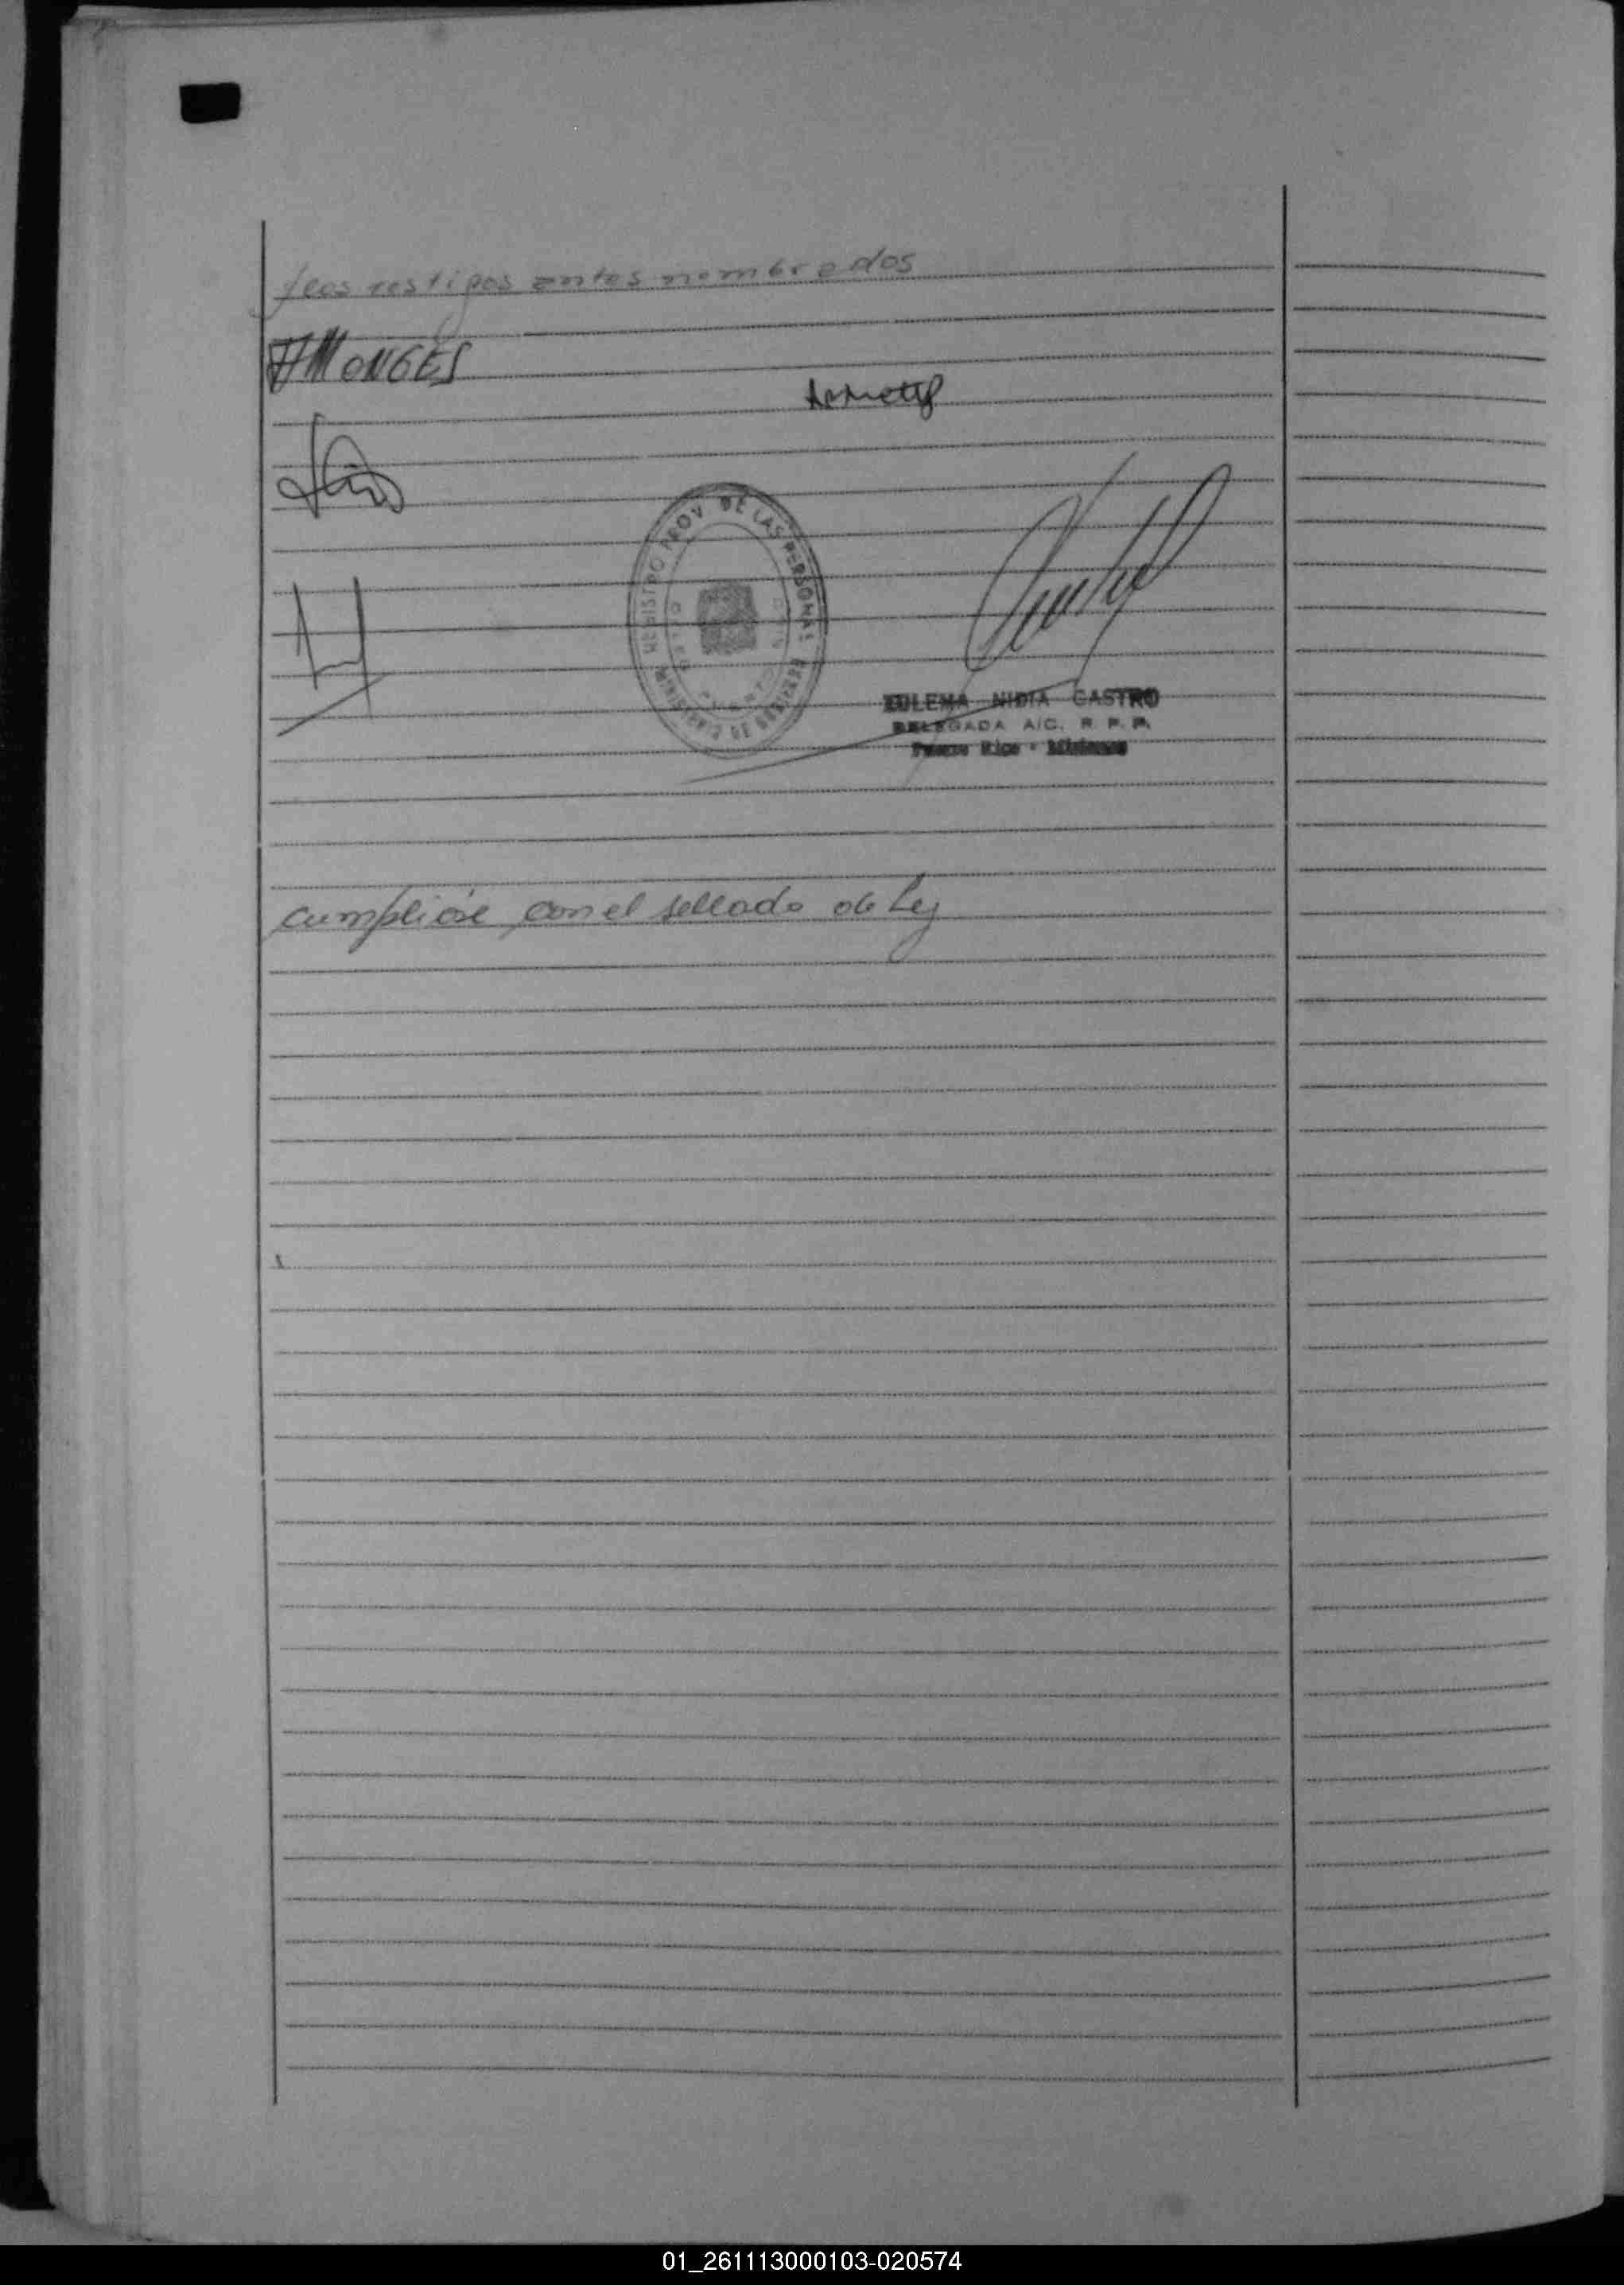 y los testigos antes nombrados
AMONGES
REGISTRO PROV. DE LAS PERSONAS
ZULEMA NIDIA CASTRO
DELEGADA A/C. R. P. P.
Puerto Rico - Misiones
cumplióse con el sellado de Ley
01_261113000103-020574